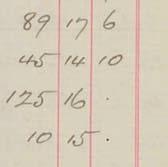 89 17 6
45 14 10
125 16 .
10 15 .